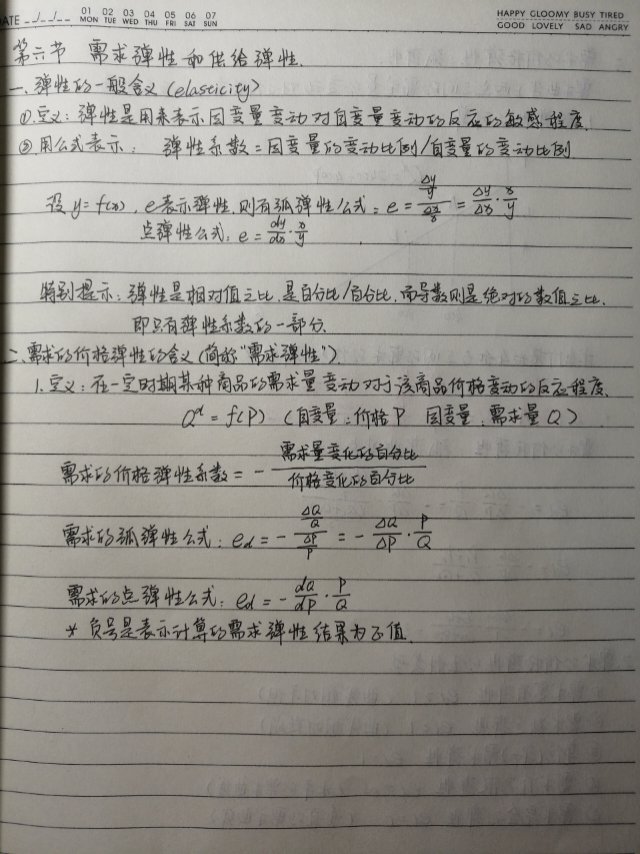 DATE __/__/__ 01 MON 02 TUE 03 WED 04 THU 05 FRI 06 SAT 07 SUN HAPPY GLOOMY BUSY TIRED
GOOD LOVELY SAD ANGRY
第六节 需求弹性和供给弹性.
一、弹性的一般含义(elasticity)
①.定义:弹性是用来表示因变量变动对自变量变动的反应的敏感程度.
②.用公式表示: 弹性系数=因变量的变动比例/自变量的变动比例
设 y=f(x), e表示弹性,则有弧弹性公式:e = (Δy/y)/(Δx/x) = Δy/Δx · x/y
点弹性公式:e = dy/dx · x/y
特别提示:弹性是相对值之比,是百分比/百分比,而导数则是绝对的数值之比,
即只有弹性系数的一部分.
二、需求的价格弹性的含义(简称"需求弹性")
1.定义:在一定时期某种商品的需求量变动对于该商品价格变动的反应程度.
Qᵈ = f(P) (自变量:价格P 因变量:需求量Q)
需求的价格弹性系数 = - 需求量变化的百分比/价格变化的百分比
需求的弧弹性公式:ed = - (ΔQ/Q)/(ΔP/P) = - ΔQ/ΔP · P/Q
需求的点弹性公式:ed = - dQ/dP · P/Q
* 负号是表示计算的需求弹性结果为正值.